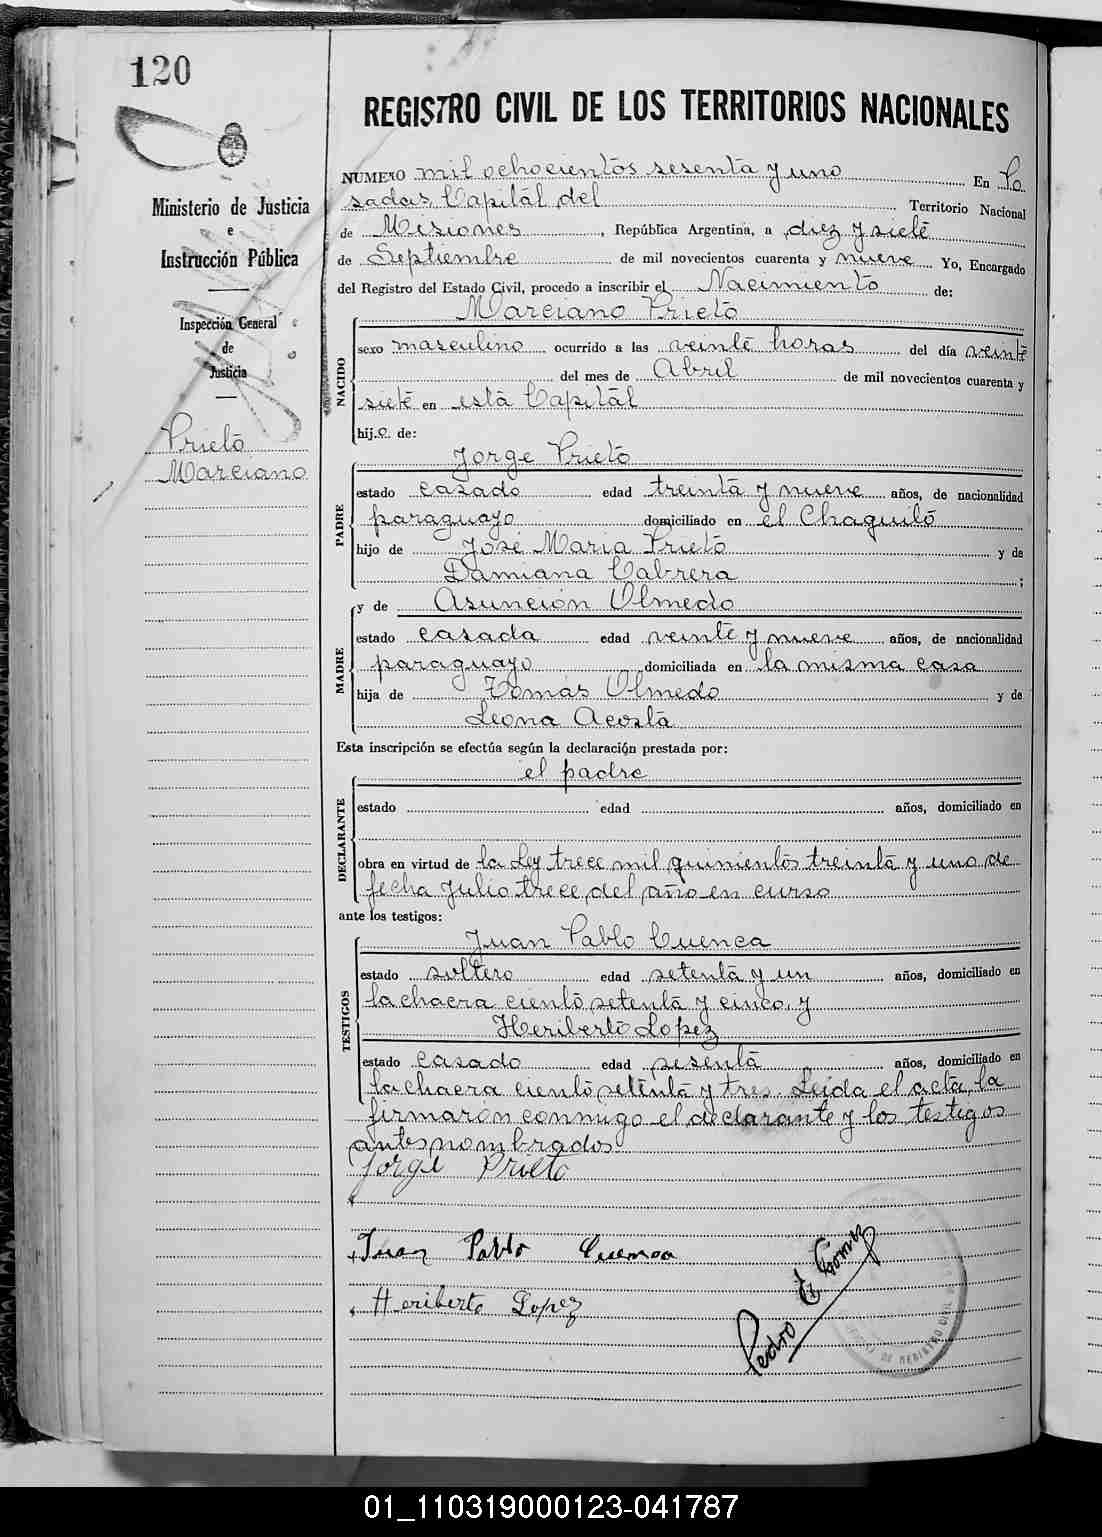 120
REGISTRO CIVIL DE LOS TERRITORIOS NACIONALES
Ministerio de Justicia
e
Instrucción Pública
Inspección General
de
Justicia
Prieto
Marciano
NUMERO mil ochocientos sesenta y uno En Po
sadas, Capital del Territorio Nacional
de Misiones, República Argentina, a diez y siete
de Septiembre de mil novecientos cuarenta y nueve Yo, Encargado
del Registro del Estado Civil, procedo a inscribir el Nacimiento de:
Marciano Prieto
NACIDO
sexo masculino ocurrido a las veinte horas del día veinte
del mes de Abril de mil novecientos cuarenta y
siete en esta Capital
hijo de:
Jorge Prieto
PADRE
estado casado edad treinta y nueve años, de nacionalidad
paraguayo domiciliado en el Chaquito
hijo de José Maria Prieto y de
Damiana Cabrera;
y de Asunción Olmedo
MADRE
estado casada edad veinte y nueve años, de nacionalidad
paraguayo domiciliada en la misma casa
hija de Tomás Olmedo y de
Leona Acosta
Esta inscripción se efectúa según la declaración prestada por:
el padre
DECLARANTE
estado edad años, domiciliado en
obra en virtud de la Ley trece mil quinientos treinta y uno de
fecha Julio trece, del año en curso
ante los testigos:
Juan Pablo Cuenca
TESTIGOS
estado soltero edad setenta y un años, domiciliado en
la chacra ciento setenta y cinco, y
Heriberto Lopez
estado casado edad sesenta años, domiciliado en
la chacra ciento setenta y tres. Leida el acta, la
firmaron conmigo el declarante y los testigos
antes nombrados
Jorge Prieto
Juan Pablo Cuenca
Heriberto Lopez
Pedro E. Gomez
DE REGISTRO CIVIL
01_110319000123-041787